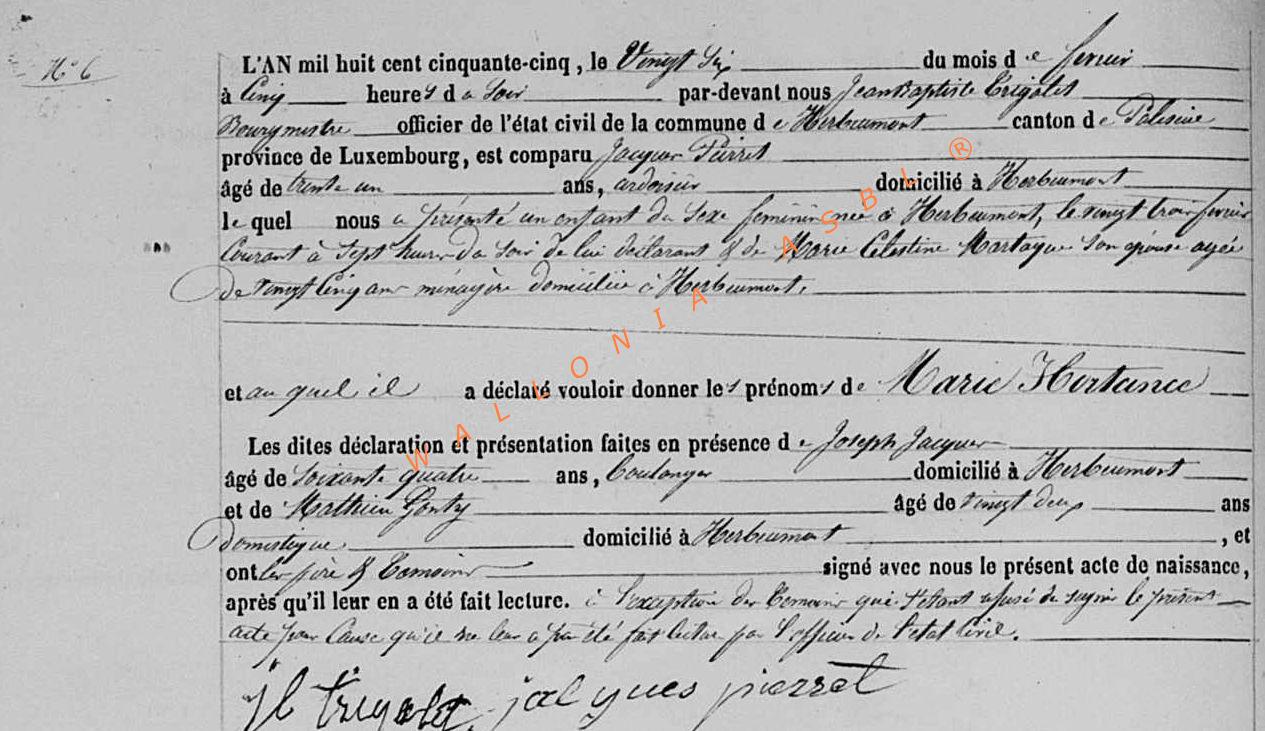 N° 6
L'AN mil huit cent cinquante-cinq, le Vingt Six du mois de fevrier
à Cinq heures du soir par-devant nous Jean Baptiste Trigalet
Bourgmestre officier de l'état civil de la commune de Herbeumont canton de Paliseul
province de Luxembourg, est comparu Jacques Pierret
âgé de trente un ans, ardoisier domicilié à Herbeumont
lequel nous a présenté un enfant du sexe feminin née à Herbeumont, le vingt trois fevrier
Courant à Sept heures du Soir de lui déclarant & de Marie Celestine Martaque Son épouse agée
de vingt Cinq ans ménagère domiciliée à Herbeumont.
et au quel il a déclaré vouloir donner les prénoms de Marie Hortance
Les dites déclaration et présentation faites en présence de Joseph Jacques
âgé de Soixante quatre ans, boulanger domicilié à Herbeumont
et de Mathieu Gonty âgé de vingt deux ans
domestique domicilié à Herbeumont, et
ont les père & Temoins signé avec nous le présent acte de naissance,
après qu'il leur en a été fait lecture. à l'exception des Temoins qui
acte pour Cause qu'il ne leur a pas été fait lecture par l'officier de l'état Civil.
jb trigalet jacques pierret
WALLONIA ASBL ®